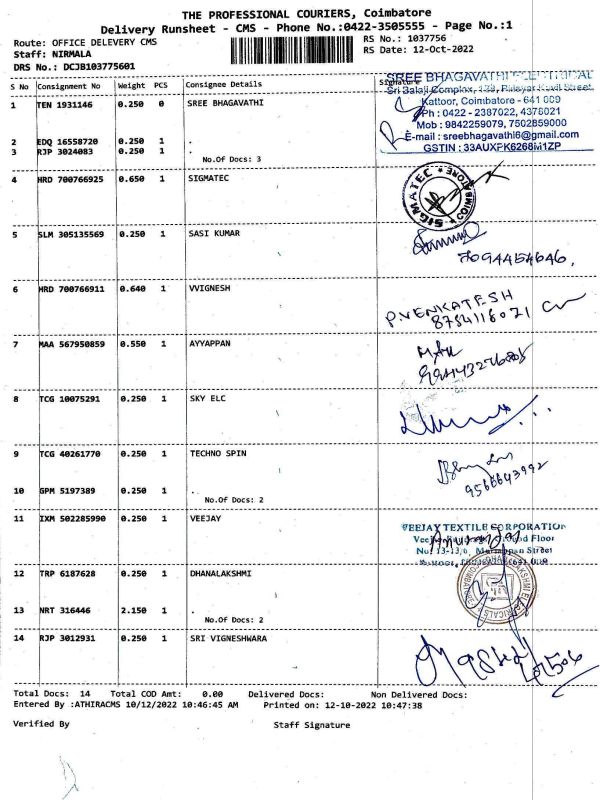 THE PROFESSIONAL COURIERS, Coimbatore
Delivery Runsheet - CMS - Phone No.:0422-3505555 - Page No.:1
Route: OFFICE DELEVERY CMS
RS No.: 1037756
Staff: NIRMALA
RS Date: 12-Oct-2022
DRS No.: DCJB103775601
S No Consignment No Weight PCS Consignee Details Signature
1 TEN 1931146 0.250 0 SREE BHAGAVATHI
SREE BHAGAVATHI ELECTRICAL
Sri Balaji Complex, 139,
Kattoor, Coimbatore - 641 009
Ph : 0422 - 2387022, 4378021
Mob : 9842259079, 7502859000
E-mail : sreebhagavathi6@gmail.com
GSTIN : 33AUXPK6268M1ZP
2 EDQ 16558720 0.250 1 .
3 RJP 3024083 0.250 1 .
No.Of Docs: 3
4 HRD 700766925 0.650 1 SIGMATEC
SIGMATEC
5 SLM 305135569 0.250 1 SASI KUMAR
7094454646.
6 HRD 700766911 0.640 1 VVIGNESH
P.VENKATESH
8754116071
7 MAA 567950859 0.550 1 AYYAPPAN
8 TCG 10075291 0.250 1 SKY ELC
9 TCG 40261770 0.250 1 TECHNO SPIN
9566643992
10 GPM 5197389 0.250 1 .
No.Of Docs: 2
11 IXM 502285990 0.250 1 VEEJAY
VEEJAY TEXTILE CORPORATION
Ground Floor
No: 13-13/6, Street
12 TRP 6187628 0.250 1 DHANALAKSHMI
13 NRT 316446 2.150 1 .
No.Of Docs: 2
14 RJP 3012931 0.250 1 SRI VIGNESHWARA
Total Docs: 14 Total COD Amt: 0.00 Delivered Docs: Non Delivered Docs:
Entered By :ATHIRACMS 10/12/2022 10:46:45 AM Printed on: 12-10-2022 10:47:38
Verified By Staff Signature